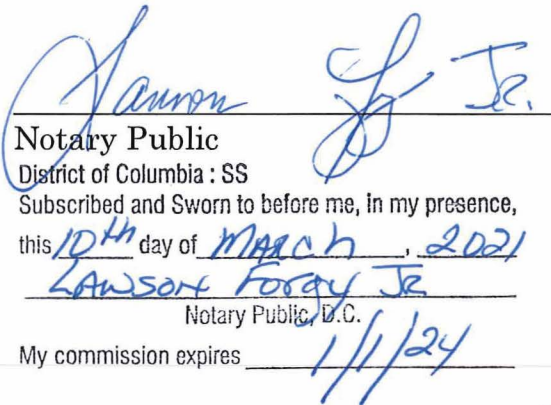 Jr.
Notary Public
District of Columbia : SS
Subscribed and Sworn to before me, in my presence,
this 10th day of March, 2021
Lawson Forgy Jr
Notary Public, D.C.
My commission expires 1/1/24